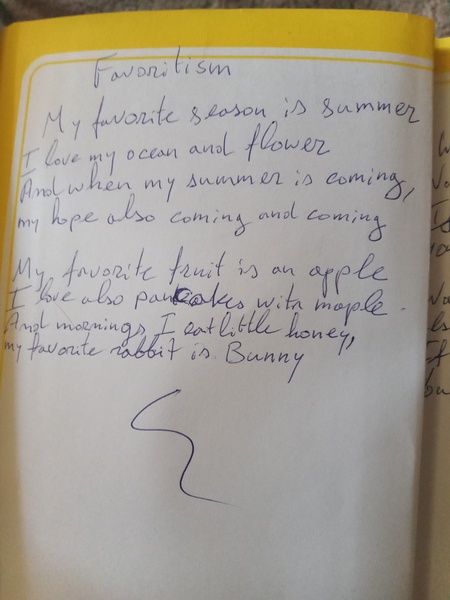 Favoritism
My favorite season is summer
I love my ocean and flower
And when my summer is coming,
my hope also coming and coming
My favorite fruit is an apple
I love also pancakes with maple.
And mornings I eat little honey,
my favorite rabbit is Bunny